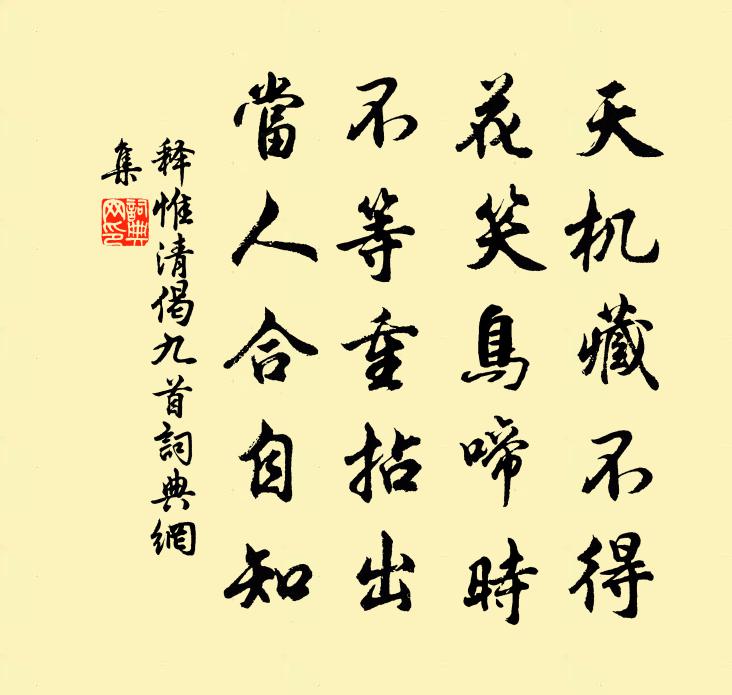 天机藏不得
花笑鳥啼時
不等重拈出
當人合自知
释惟清偈九首詞典網
集
詞典
网印